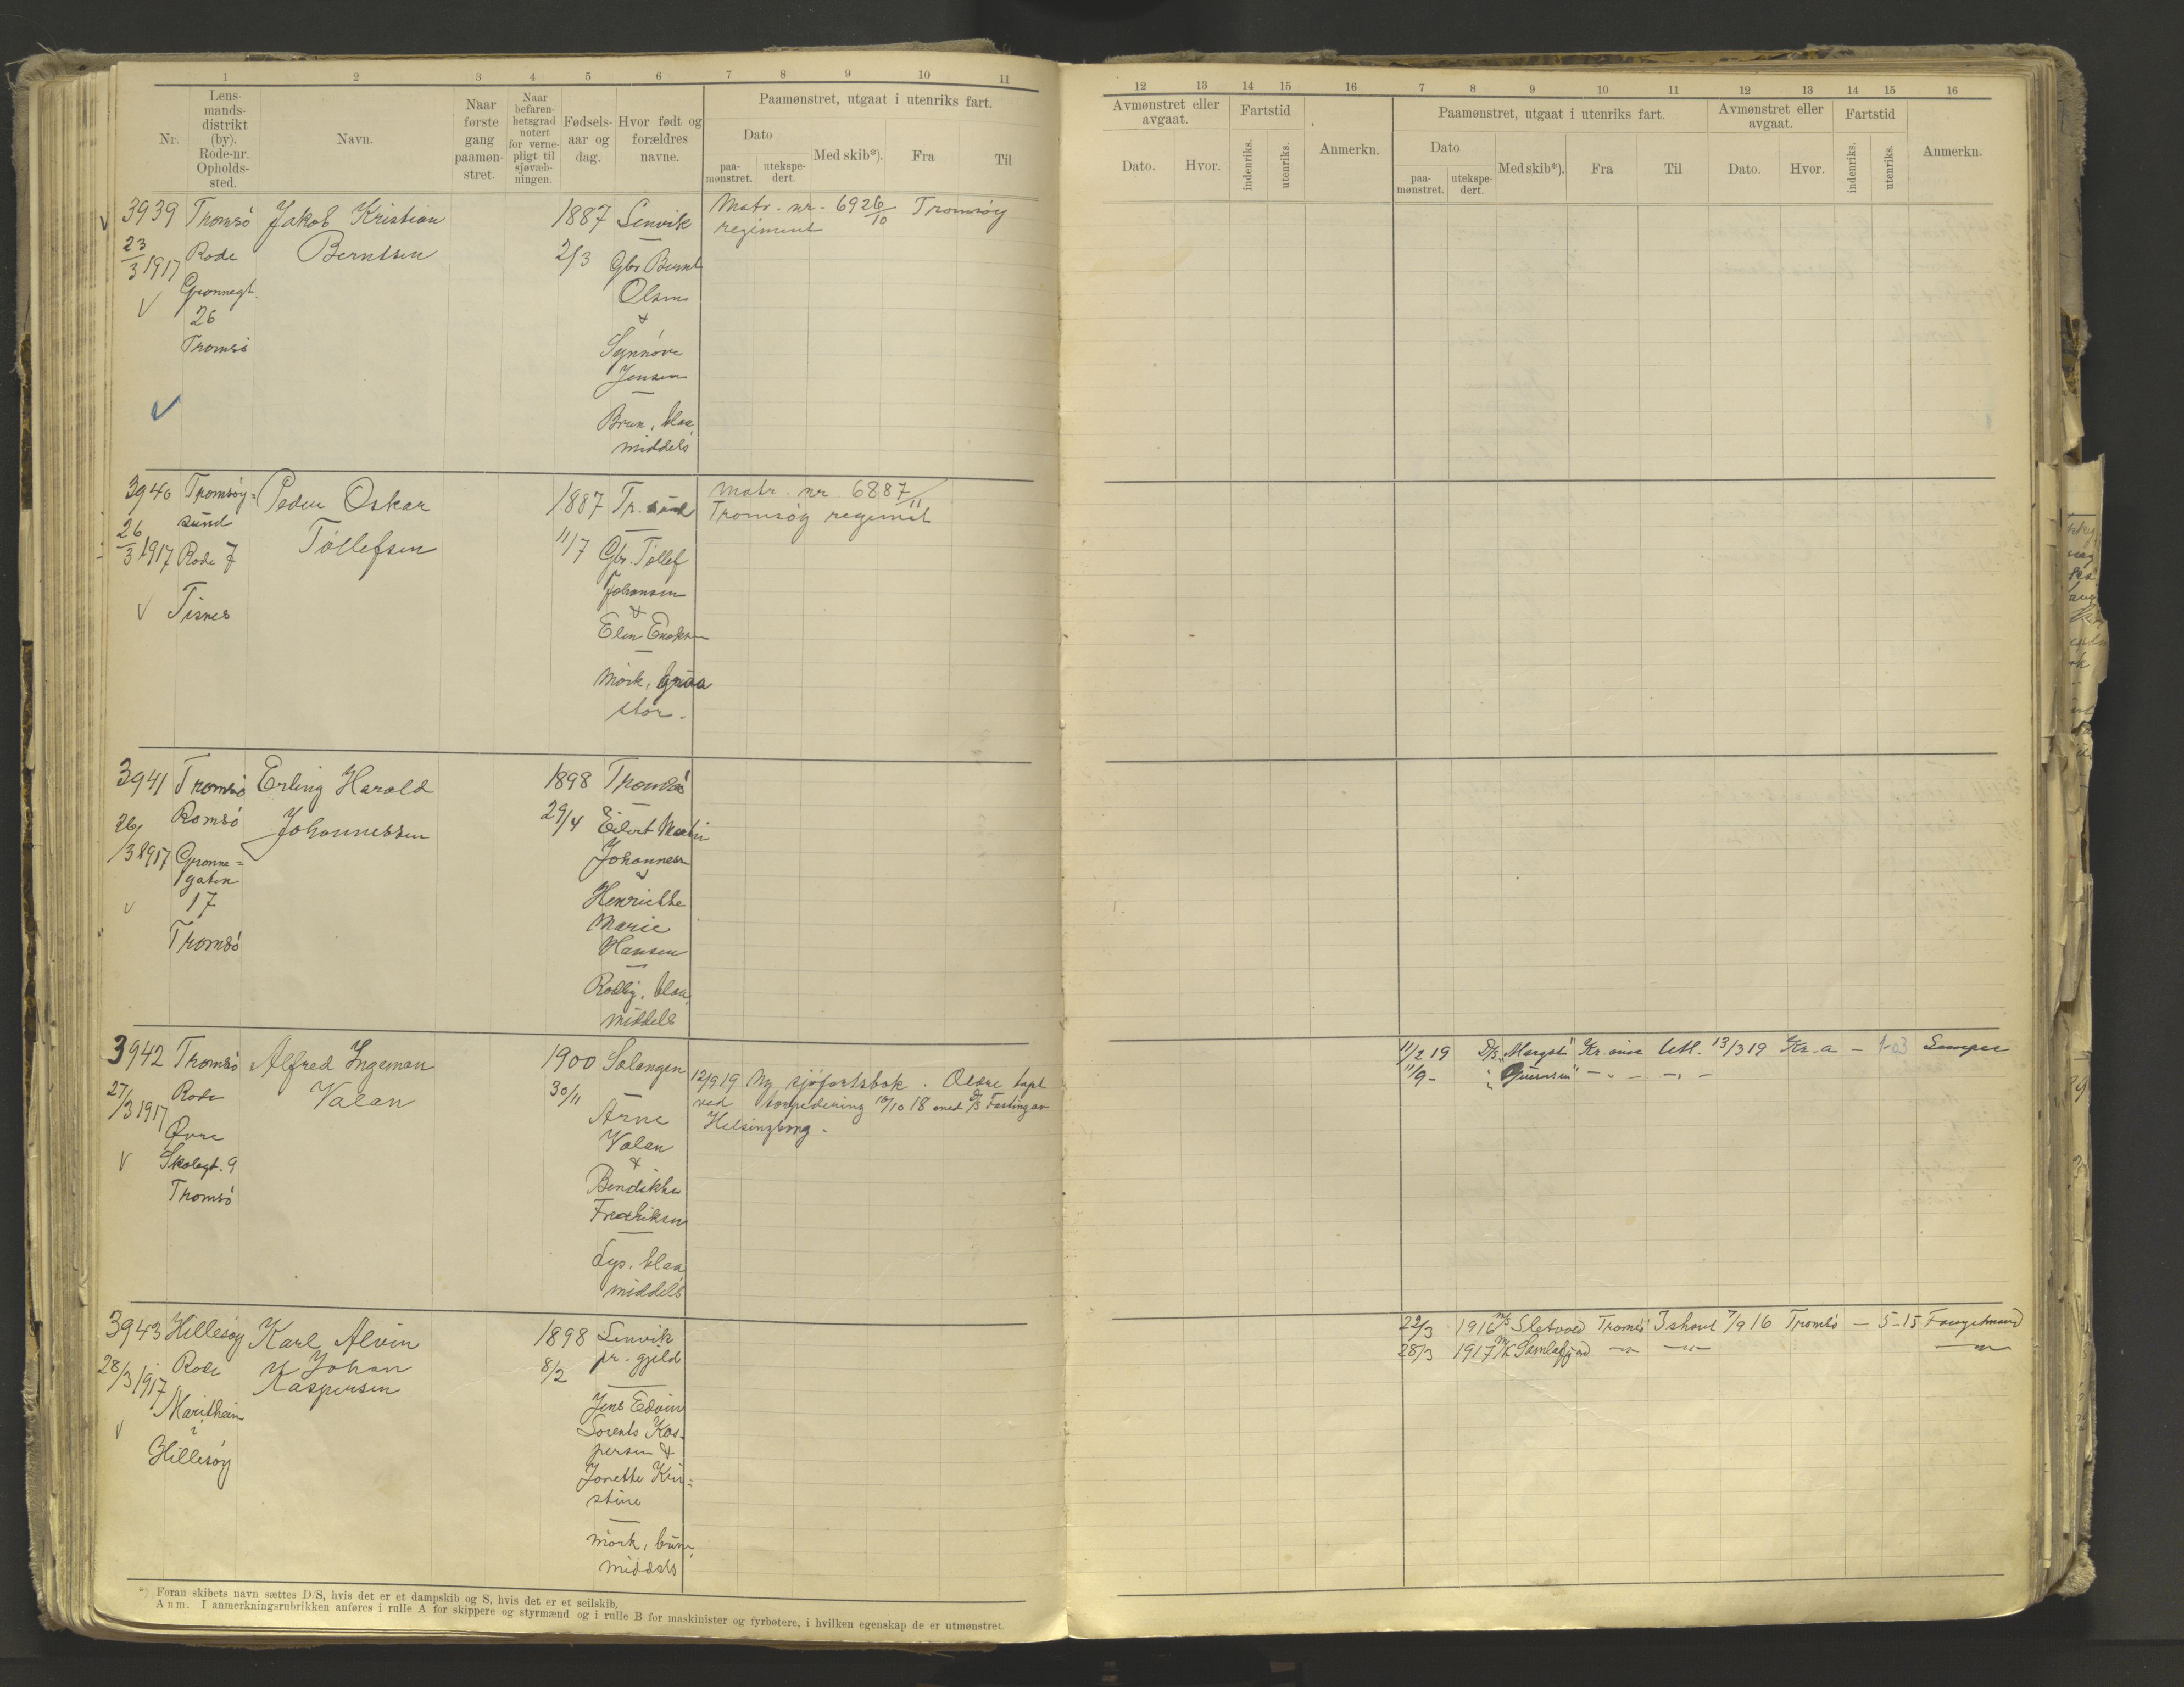 1 2 3 4 5 6 7 8 9 10 11
Nr.
Lens-
mands-
distrikt
(by).
Rode-nr.
Opholds-
sted.
Navn.
Naar
første
gang
paamøn-
stret.
Naar
befaren-
hetsgrad
notert
for verne-
pligt til
sjøvæb-
ningen.
Fødsels-
aar og
dag.
Hvor født og
forældres
navne.
Paamønstret, utgaat i utenriks fart.
Dato
paa-
mønstret.
utekspe-
dert.
Med skib*).
Fra
Til
3939 Tromsö Jakob Kristian 1887 Lenvik Matr. nr. 6926/10 Tromsøy
23/3 1917 Rode Berntsen 2/3 Gbr Bernt regiment
Grønnegt. Olsen
26 &
Tromsö Synnöve
Jensen
Brun, blaa,
middels
3940 Tromsøy= Peder Oskar 1887 Tr. sund Matr. nr. 6887/11
sund Tromsøy regiment
26/3 1917 Rode 7 Töllefsen 11/7 Gbr. Töllef
Johansen
Tisnes &
Elen
mörk, graa
stor.
3941 Tromsö Erling Harald 1898 Tromsö
26/3 1917 Johannessen 29/4 Eilert Martin
Grønne= Johannessen
gaten &
17 Henriette
Tromsö Marie
Hansen
blaa,
middels
3942 Tromsö Alfred Ingeman 1900 Salangen 12/9 19 Ny sjöfartsbok. Ældre tapt
27/3 1917 Rode Valan 30/11 ved torpedering 10/10 18 med D/S
Øvre Arne Helsingborg.
Skolegt. 9 Valan
Tromsö &
Bendikte
Fredriksen
Lys, blaa
middels
3943 Hillesøy Karl Alvin 1898 Lenvik
28/3 1917 Rode Johan 8/2 pr. gjeld
Kaspersen
i Jens Edvin
Hillesøy Lorents Kas-
persen &
Jonette Kri=
stine
mörk,
middels
*) Foran skibets navn sættes D/S, hvis det er et dampskib og S, hvis det er et seilskib.
Anm. I anmerkningsrubrikken anføres i rulle A for skippere og styrmænd og i rulle B for maskinister og fyrbøtere, i hvilken egenskap de er utmønstret.
12 13 14 15 16 7 8 9 10 11 12 13 14 15 16
Avmønstret eller
avgaat.
Dato.
Hvor.
Fartstid
indenriks.
utenriks.
Anmerkn.
Paamønstret, utgaat i utenriks fart.
Dato
paa-
mønstret.
utekspe-
dert.
Med skib*).
Fra
Til
Avmønstret eller
avgaat.
Dato.
Hvor.
Fartstid
indenriks.
utenriks.
Anmerkn.
11/2 19 D/S Utl. 13/3 19 Kr.a — 1-03
11/9 -
22/3 1916 M/S Sletvold Tromsö Ishavet 7/9 16 Tromsö — 5-15 Fangstmand
28/3 1917 M/K